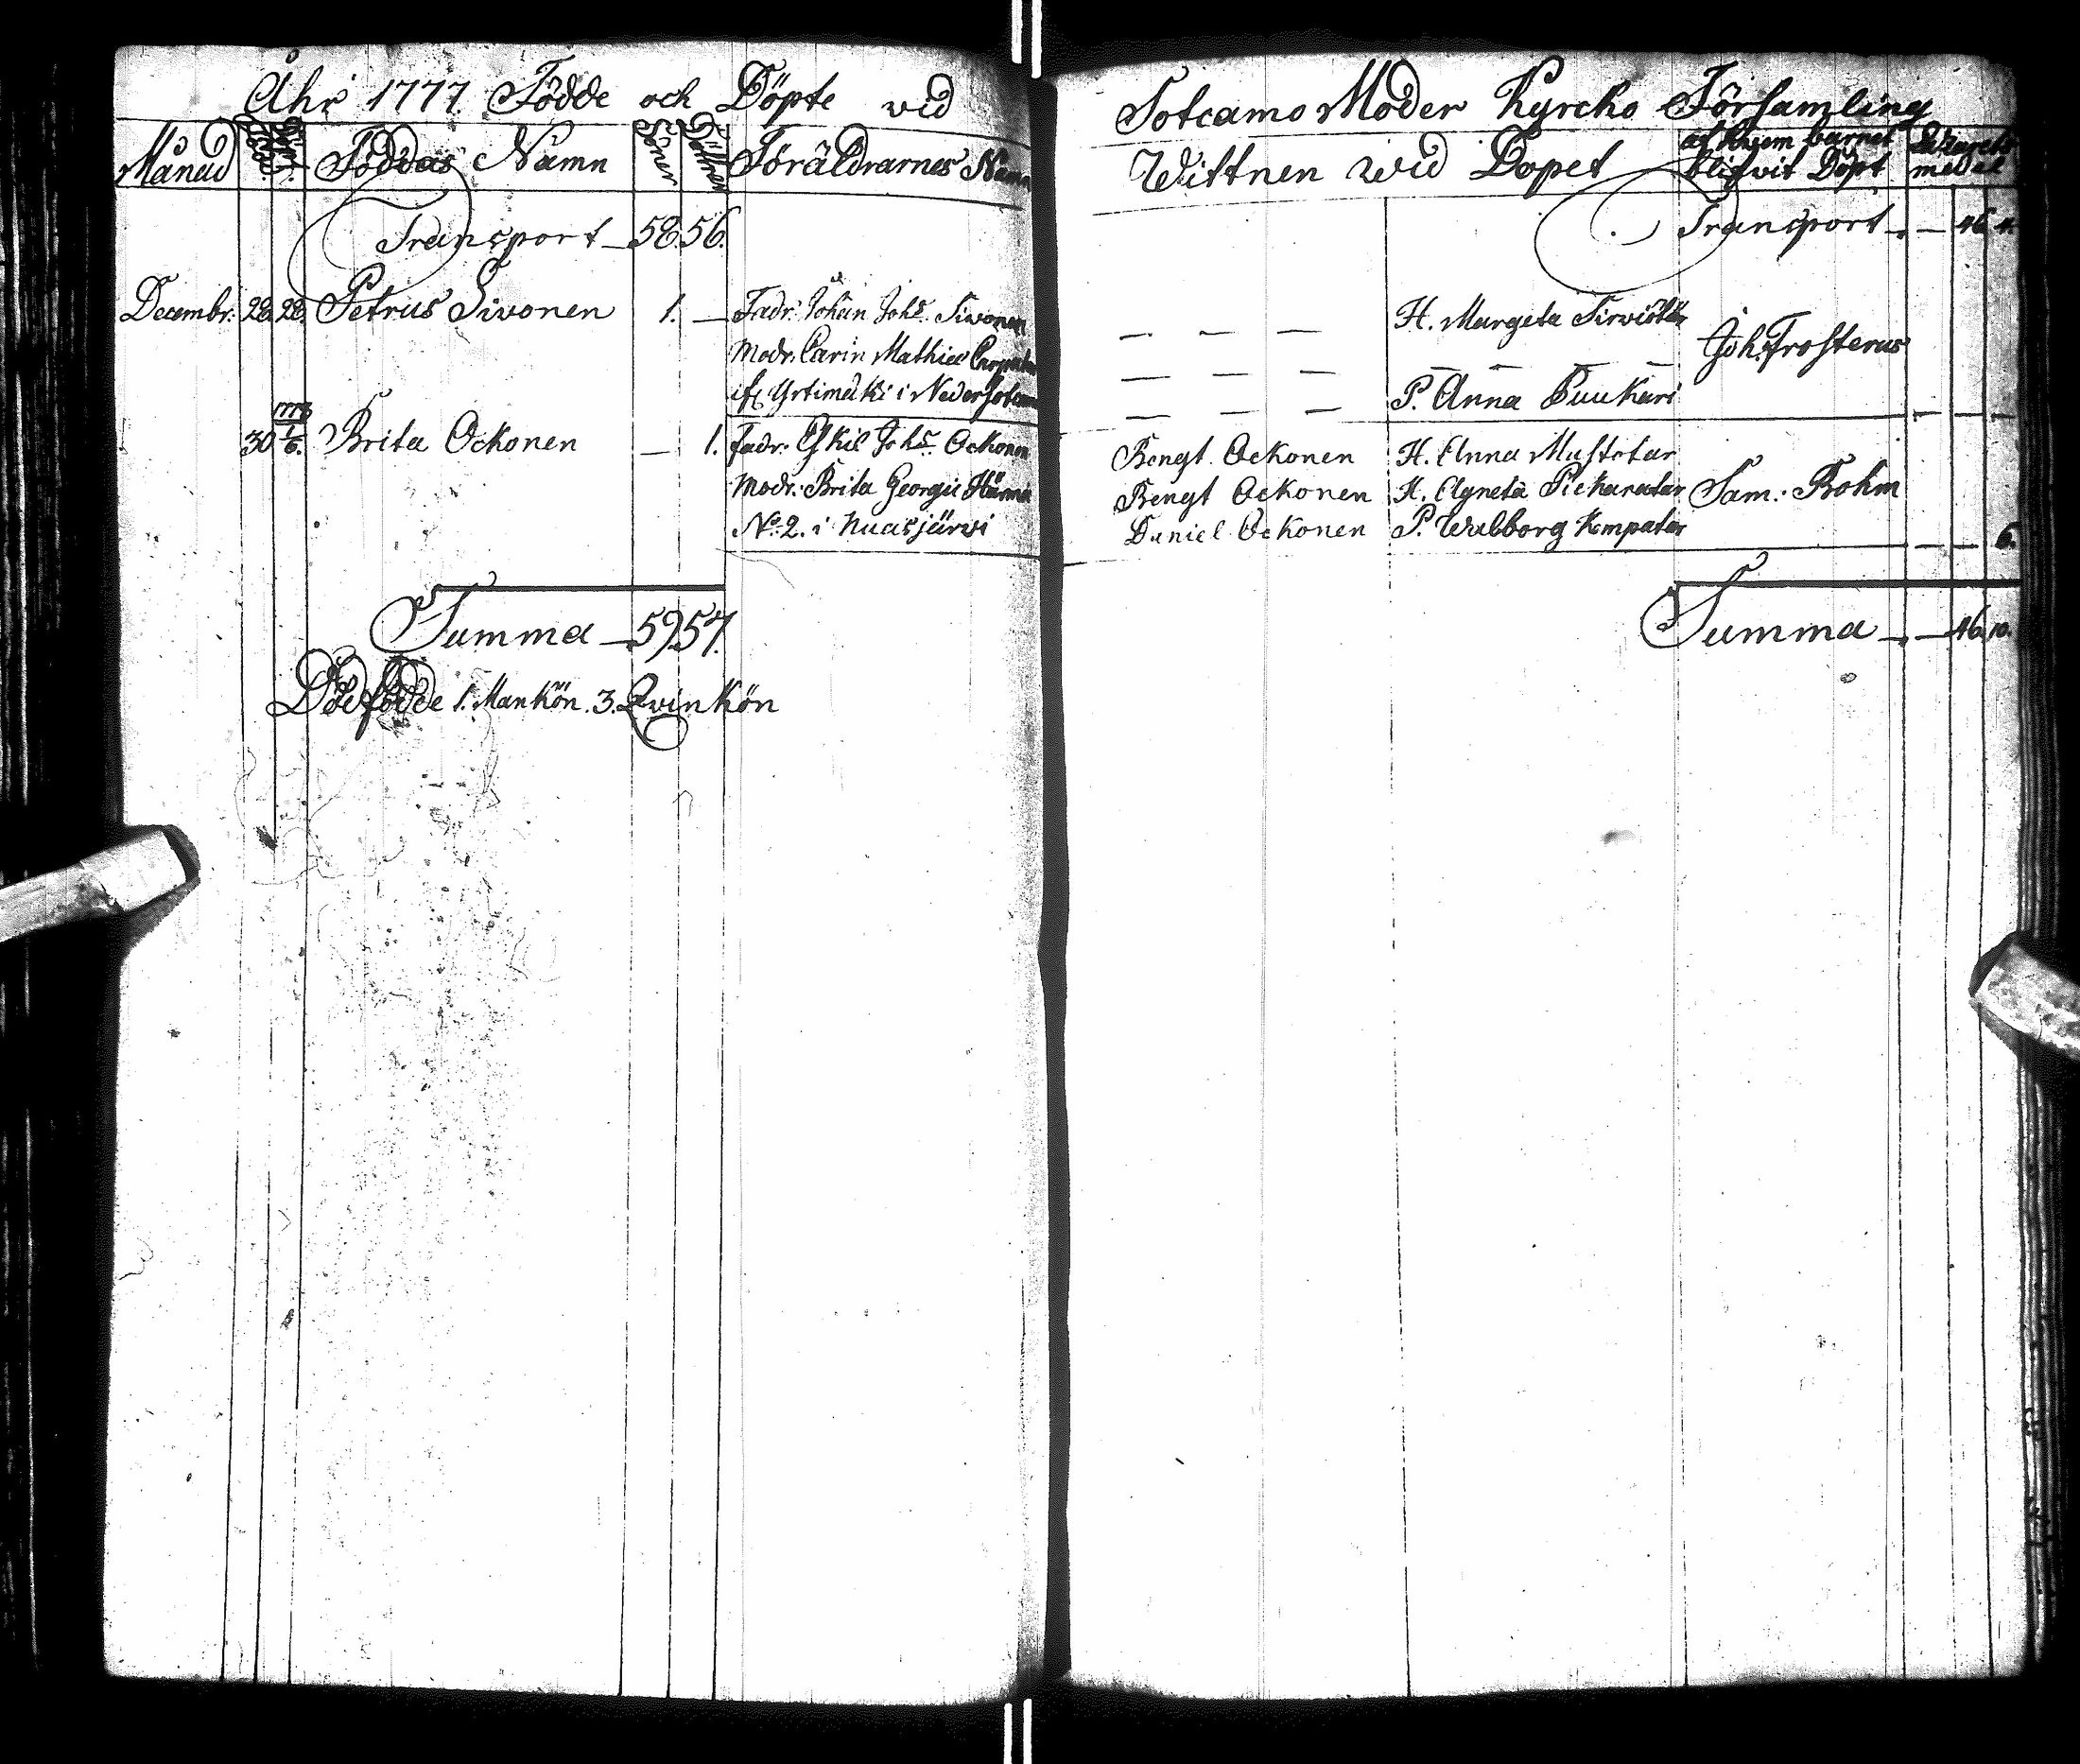 Åhr 1777 Födde och Döpte wid
Månad Födde Döpte Föddas Namn Söner Döttrar Föräldrarnes Namn
Transport 58. 56.
Decembr: 28. 28. Petrus Sivonen 1. — Fadr: Johan Johs: Sivonen
Modr: Carin Mathiæ
i Nedersotcamo
1778
30 1/6. Brita Ockonen — 1. Fadr: Eskil Johs: Ockonen
Modr: Brita Georgii
No: 2. i Nuasjärvi
Summa — 59. 57.
Dödfödde 1. Mankön. 3. Qvinkön
Sotcamo Moder Kyrcko Församling
Wittnen wid Dopet af hwem barnet
blifvit Döpt medel
Transport — — 46. 4.
— — — H. Margeta
— — — — — — Joh: Frosterus
— — — P. Anna Puukari
Bengt Ockonen H. Anna Mustotar
Bengt Ockonen H. Agneta Pickaratar Sam: Bohm
Daniel Ockonen P. Walborg Kempatar
— — 6.
Summa — — 46. 10.